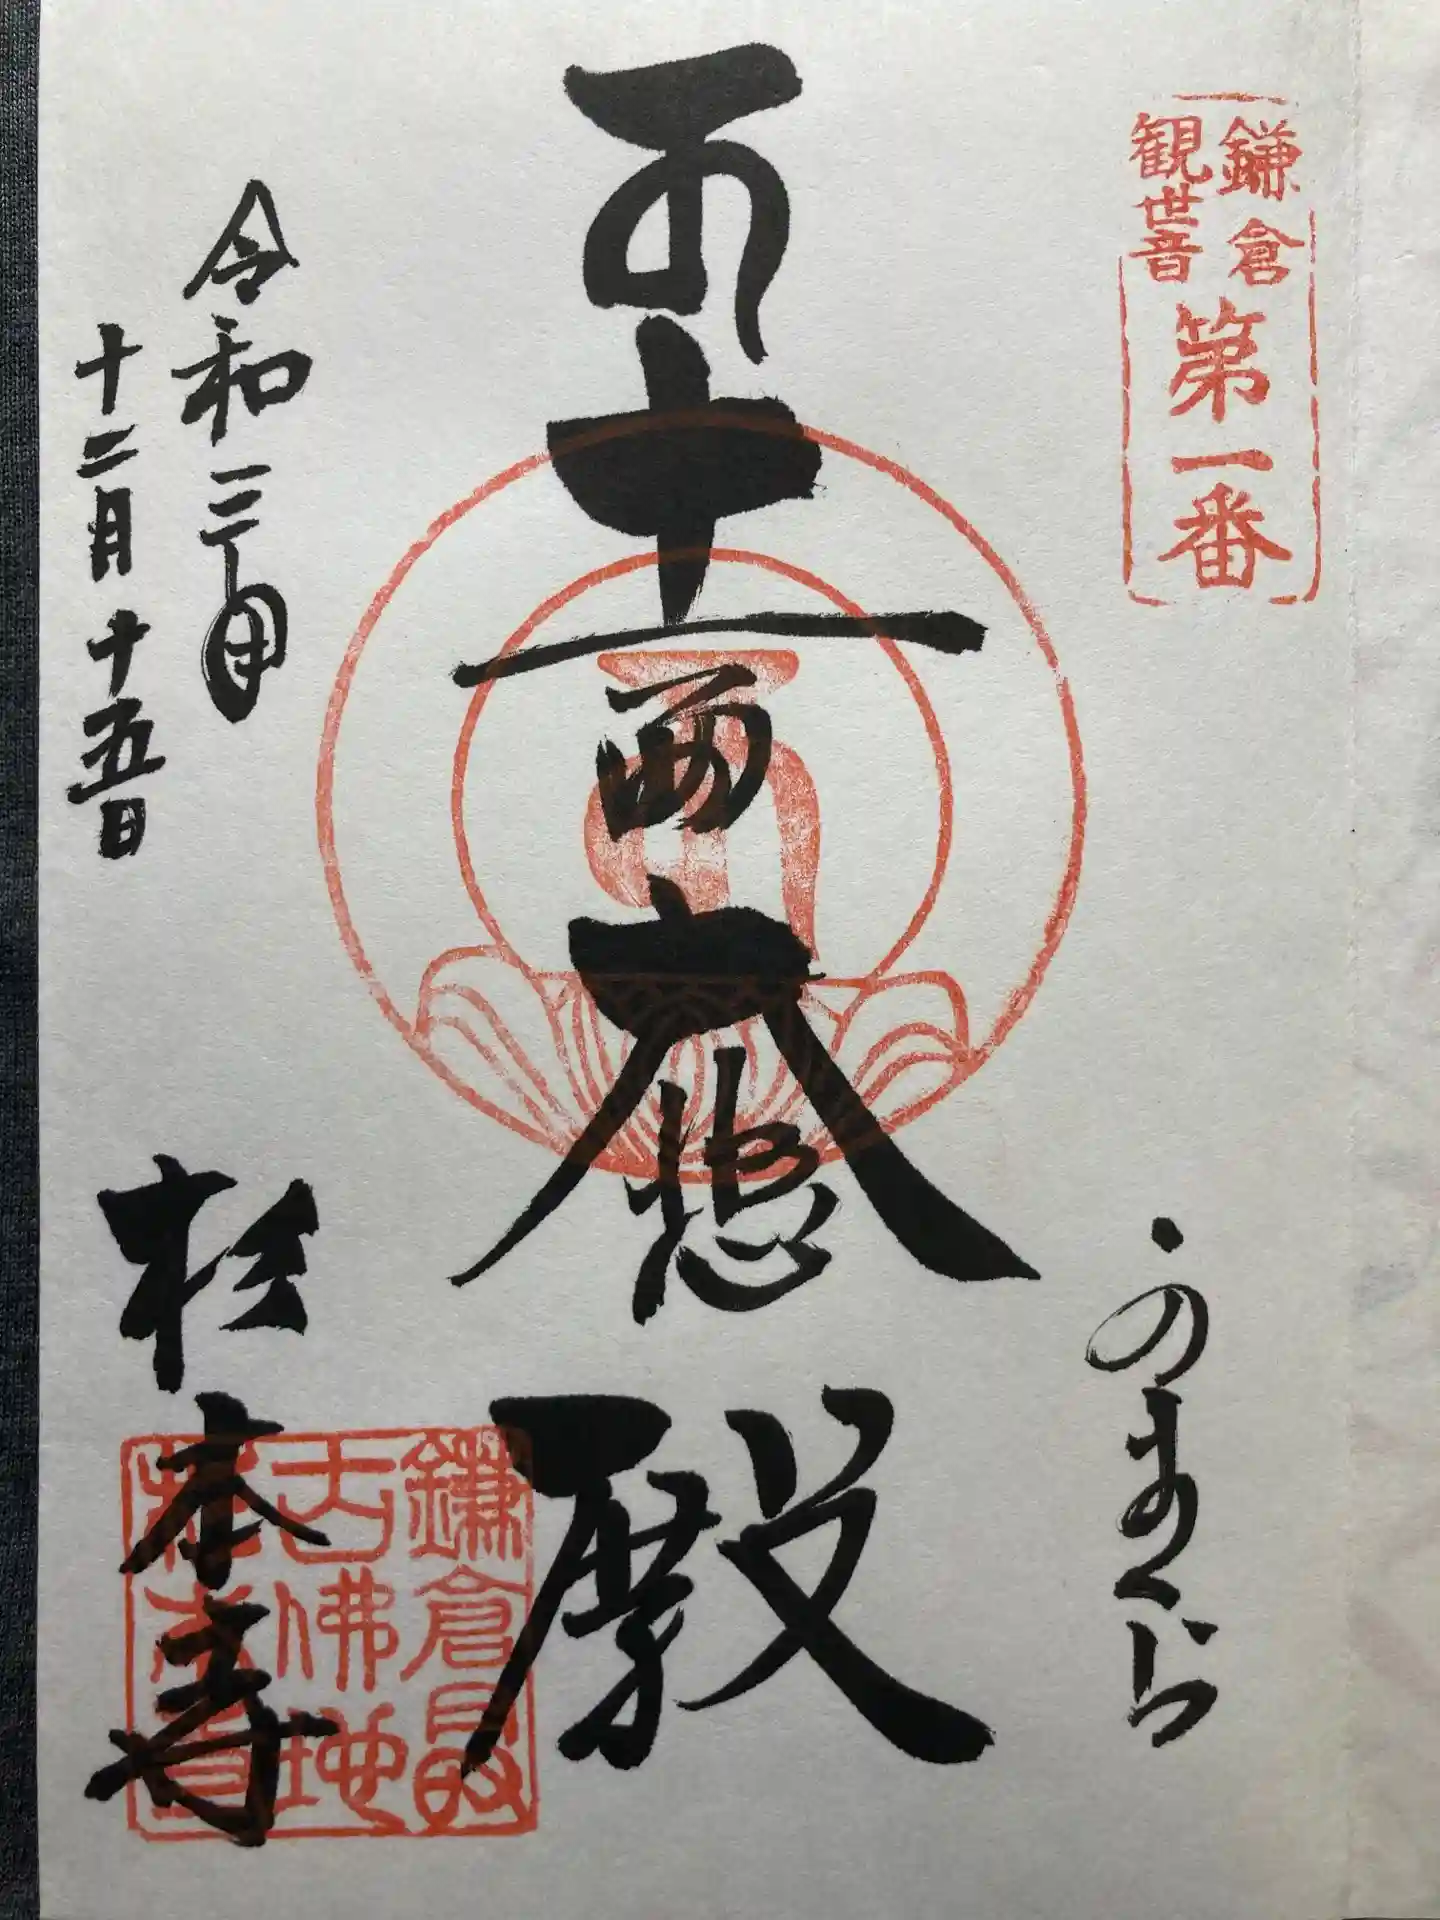 鎌倉
観世音
第一番
かまくら
十一面大悲殿
令和三年
十二月十五日
杉本寺
鎌倉最
古佛地
杉本寺